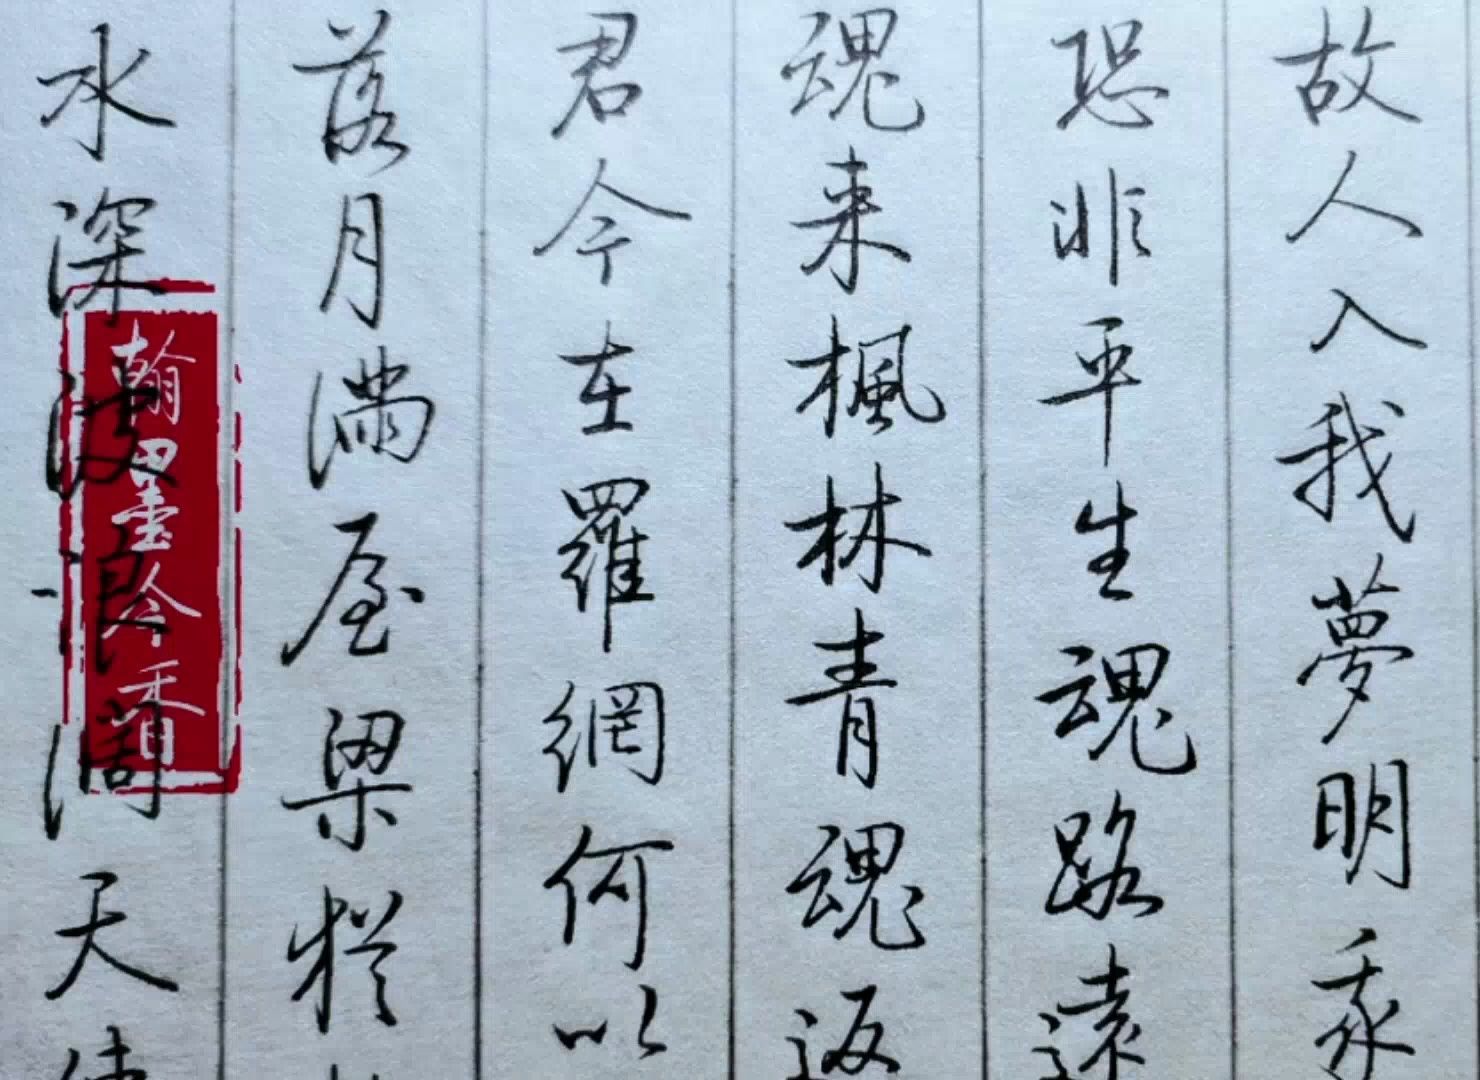 故人入我夢明我
恐非平生魂路遠
魂来楓林青魂返
君今在羅網何以
落月满屋梁猶
水深波浪阔天使
翰墨今香